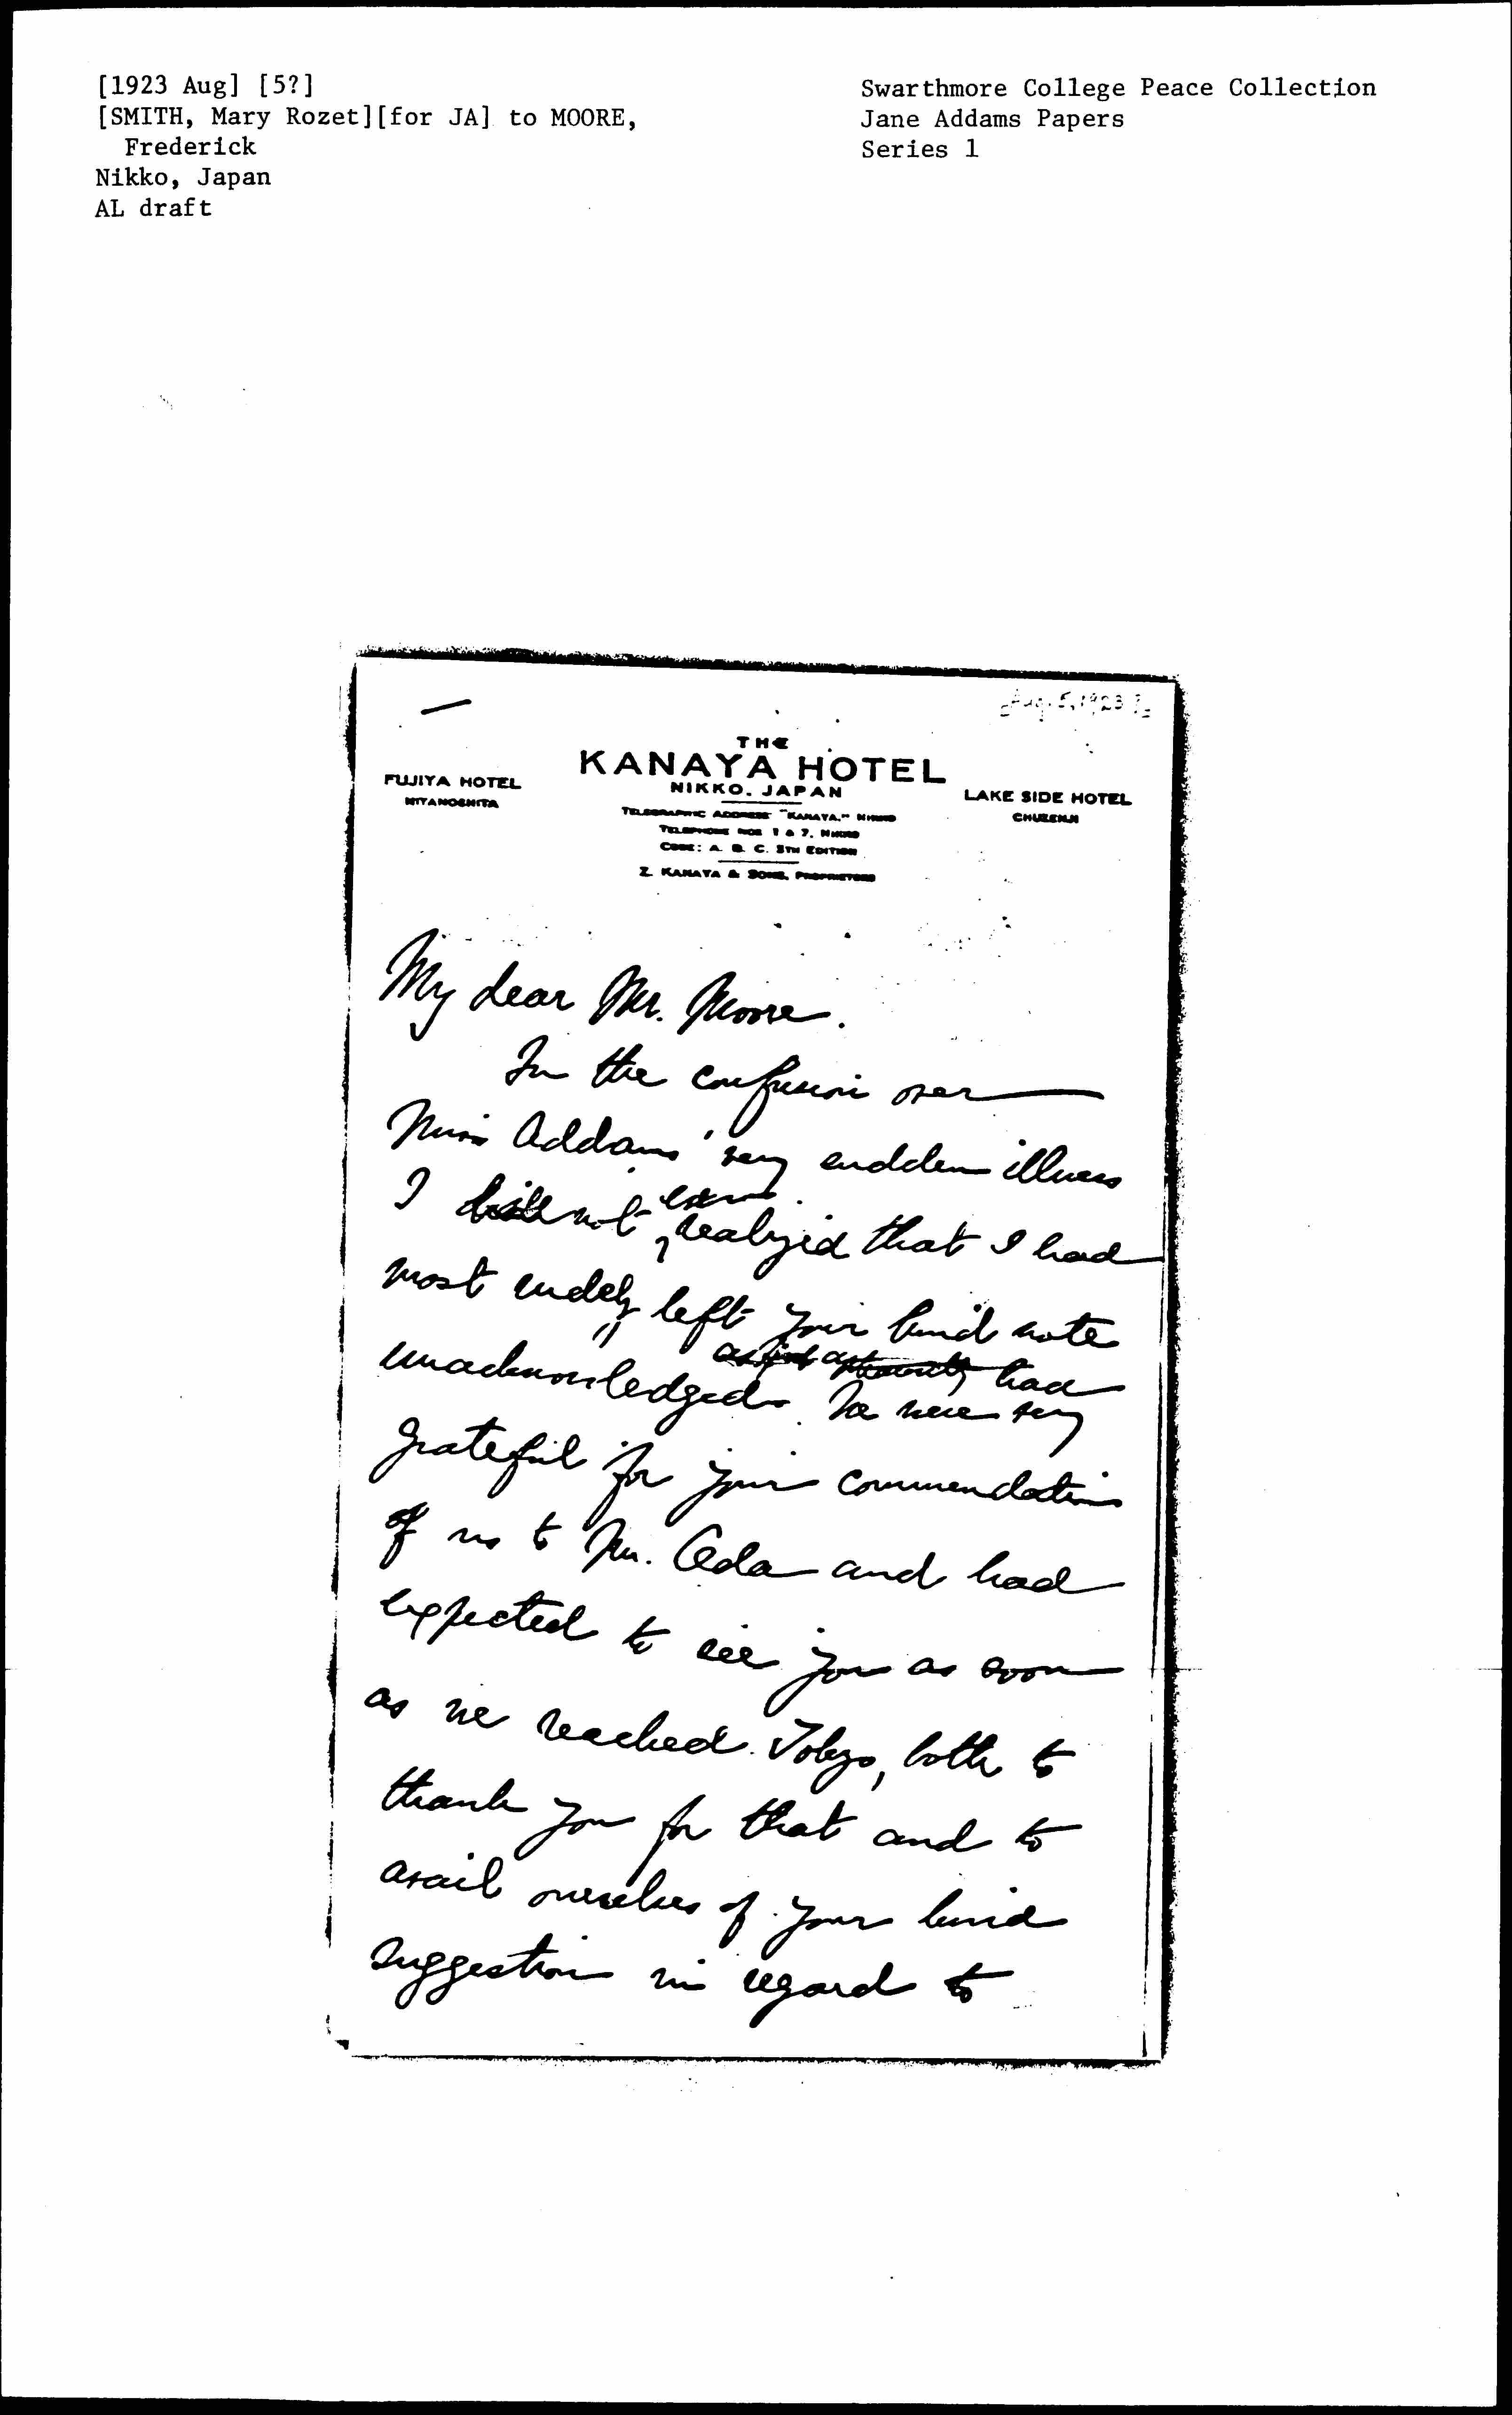 [1923 Aug] [5?]
[SMITH, Mary Rozet][for JA] to MOORE,
Frederick
Nikko, Japan
AL draft
Swarthmore College Peace Collection
Jane Addams Papers
Series 1
Aug. 5, 1923 ?
THE
KANAYA HOTEL
NIKKO, JAPAN
FUJIYA HOTEL
MIYANOSHITA
LAKE SIDE HOTEL
CHUZENJI
TELEGRAPHIC ADDRESS "KANAYA," NIKKO
TELEPHONE NOS 1 & 7, NIKKO
CODE: A. B. C. 5TH EDITION
Z. KANAYA & SONS, PROPRIETORS
My dear Mr. Moore.
In the confusion over
Miss Addams' very sudden illness
I not realized that I had
most rudely left your kind note
had
unacknowledged. We were very
grateful for your commendation
of us to Mr. and had
expected to see you as soon
as we reached Tokyo, both to
thank you for that and to
avail ourselves of your kind
suggestion in regard to